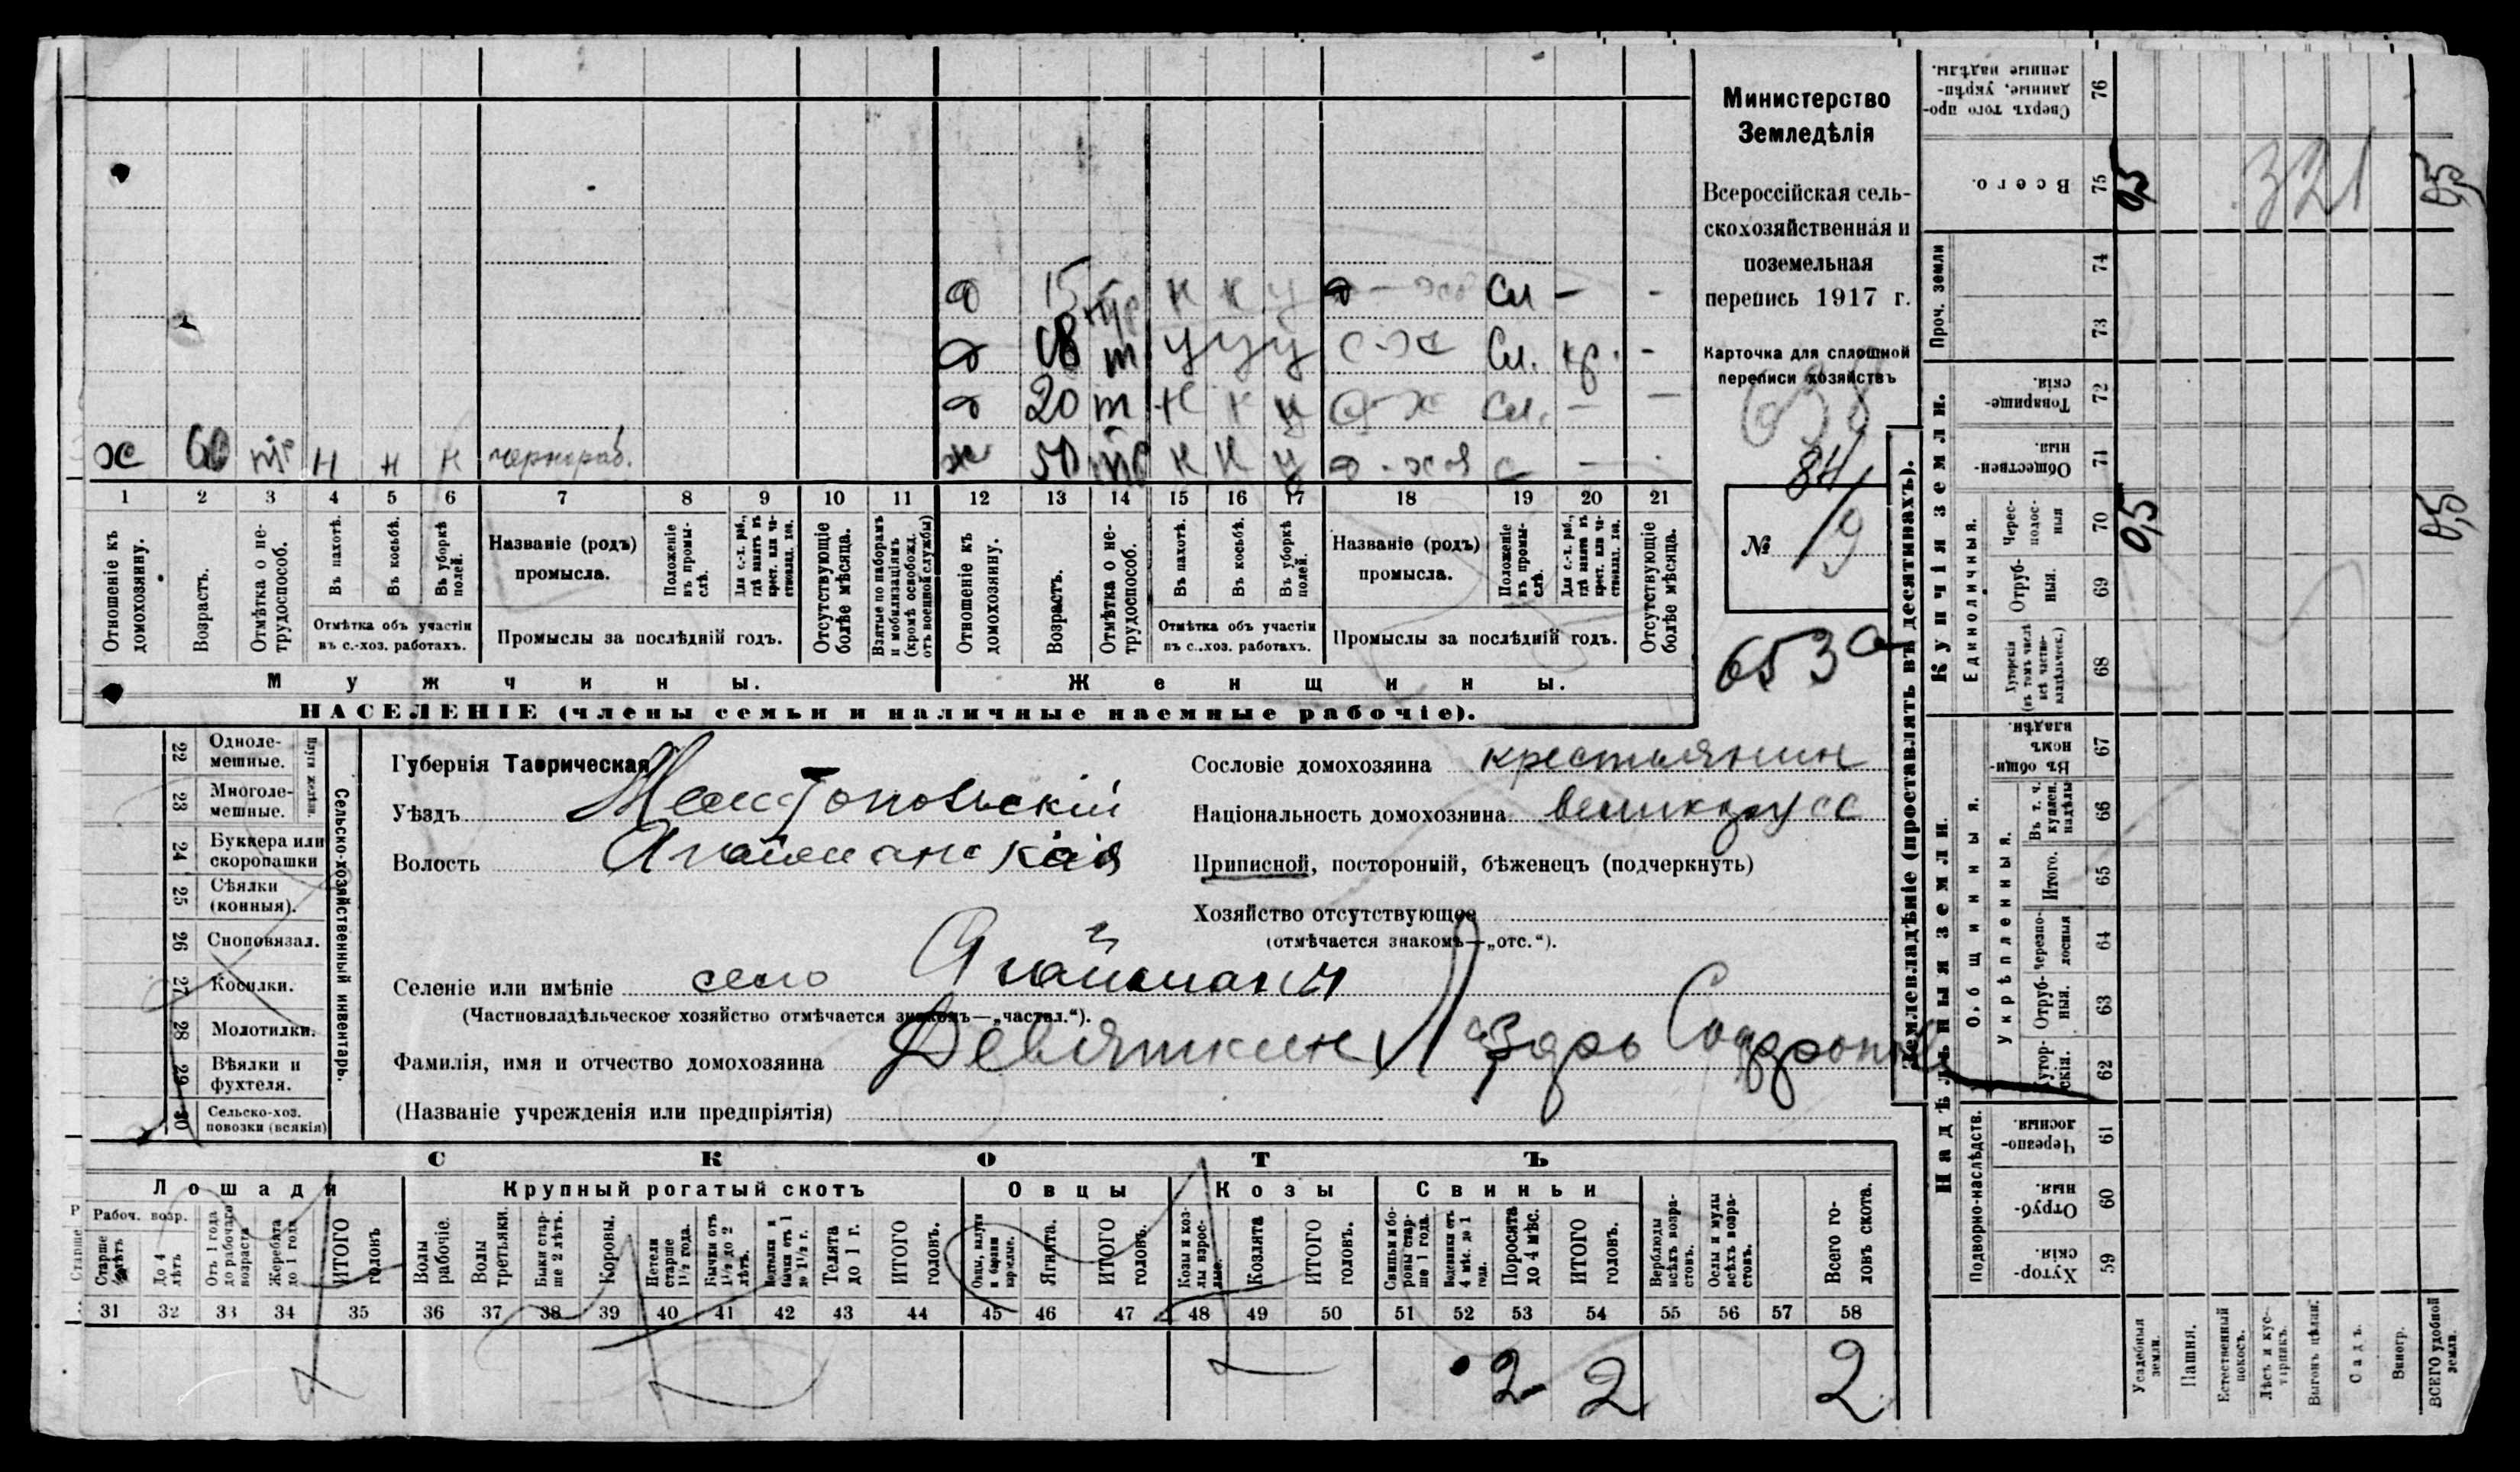 д 15 тр н н у д-хоз Сл - -
д 18 т у у у с-х Сл. кр. -
д 20 т н н у д-х Сл. - -
х 60 тр н н н чернораб. ж 50 тр н н у д-хоз с - -
1 2 3 4 5 6 7 8 9 10 11 12 13 14 15 16 17 18 19 20 21
Отношеніе къ домохозяину.
Возрастъ.
Отмѣтка о нетрудоспособ.
Въ пахотѣ.
Въ косьбѣ.
Въ уборкѣ полей.
Отмѣтка объ участіи
въ с.-хоз. работахъ.
Названіе (родъ)
промысла.
Положеніе въ промыслѣ.
Для с.-х. раб., гдѣ занятъ въ крест. или частновлад. хоз.
Промыслы за послѣдній годъ.
Отсутствующіе болѣе мѣсяца.
Взятые по наборамъ и мобилизаціямъ (кромѣ освобожд. отъ военной службы)
Отношеніе къ домохозяину.
Возрастъ.
Отмѣтка о нетрудоспособ.
Въ пахотѣ.
Въ косьбѣ.
Въ уборкѣ полей.
Отмѣтка объ участіи
въ с..хоз. работахъ.
Названіе (родъ)
промысла.
Положеніе въ промыслѣ.
Для с.-х. раб., гдѣ занятъ въ крест. или частновлад. хоз.
Промыслы за послѣдній годъ.
Отсутствующіе болѣе мѣсяца.
Мужчины.
Женщины.
НАСЕЛЕНІЕ (члены семьи и наличные наемные рабочіе).
Министерство
Земледѣлія
Всероссійская сель-
скохозяйственная и
поземельная
перепись 1917 г.
Карточка для сплошной
переписи хозяйствъ
638
84
№ 19
653а
22 Одноле-
мешные.
23 Многоле-
мешные.
Плуги желѣзн.
24 Буккера или
скоропашки
25 Сѣялки
(конныя).
26 Сноповязал.
27 Косилки.
28 Молотилки.
29 Вѣялки и
фухтеля.
30 Сельско-хоз.
повозки (всякія)
Сельско-хозяйственный инвентарь.
Губернія Таврическая
Уѣздъ Мелитопольскій
Волость Агайманская
Сословіе домохозяина крестьянин
Національность домохозяина великорусс
Приписной, посторонній, бѣженецъ (подчеркнуть)
Хозяйство отсутствующее
(отмѣчается знакомъ—„отс.“).
Селеніе или имѣніе село Агайман
(Частновладѣльческое хозяйство отмѣчается знакомъ—„частвл.“).
Фамилія, имя и отчество домохозяина Девяткин Лазарь Софрон
(Названіе учрежденія или предпріятія)
СКОТЪ
Лошади
Крупный рогатый скотъ
Овцы
Козы
Свиньи
Рабоч. возр.
Старше 4 лѣтъ
До 4 лѣтъ
Отъ 1 года до рабочаго возраста
Жеребята до 1 года
ИТОГО головъ
Волы рабочіе.
Волы третьяки.
Быки старше 2 лѣтъ.
Коровы.
Нетели старше 1½ года.
Бычки отъ 1½ до 2 лѣтъ.
Телки и бычки отъ 1 до 1½ г.
Телята до 1 г.
ИТОГО головъ.
Овцы, валухи и бараны взрослые.
Ягнята.
ИТОГО головъ.
Козы и козлы взрослые.
Козлята
ИТОГО головъ.
Свиньи боровы старше 1 года.
Подсвинки отъ 4 мѣс. до 1 года.
Поросята до 4 мѣс.
ИТОГО головъ.
Верблюды всѣхъ возрастовъ.
Ослы и мулы всѣхъ возрастовъ.
Всего головъ скота.
31 32 33 34 35 36 37 38 39 40 41 42 43 44 45 46 47 48 49 50 51 52 53 54 55 56 57 58
2 2 2
Землевладѣніе (проставлять въ десятинахъ).
Купчія земли.
Проч. земли
Единоличныя.
Надѣльныя земли.
Общинныя.
Укрѣпленныя.
Подворно-наслѣдств.
76 Сверхъ того проданные, укрѣпленные надѣлы.
75 Всего. 0,5 321 0,5
74
73
72 Товарищескія.
71 Общественныя.
70 Черезполосныя 0,5 0,5
69 Отрубныя.
68 Хуторскія (въ томъ числѣ всѣ частновладѣльческ.)
67 Въ общиномъ владѣн.
66 Въ т. ч. куплен. надѣлы
65 Итого.
64 Черезполосныя
63 Отрубныя.
62 Хуторскія.
61 Черезполосныя.
60 Отрубныя.
59 Хуторскія.
Усадебныя земли.
Пашня.
Естественный покосъ.
Лѣсъ и кустарникъ.
Выгонъ цѣлин.
Садъ.
Виногр.
ВСЕГО удобной земли.